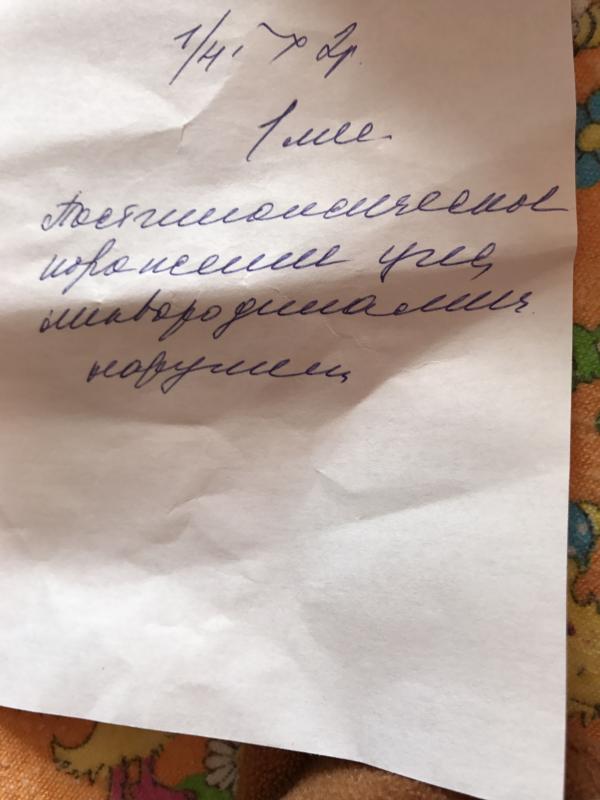 1/4 т × 2р.
1 мес.
Постгипоксическое
поражение ЦНС,
ликвородинамич.
наруше